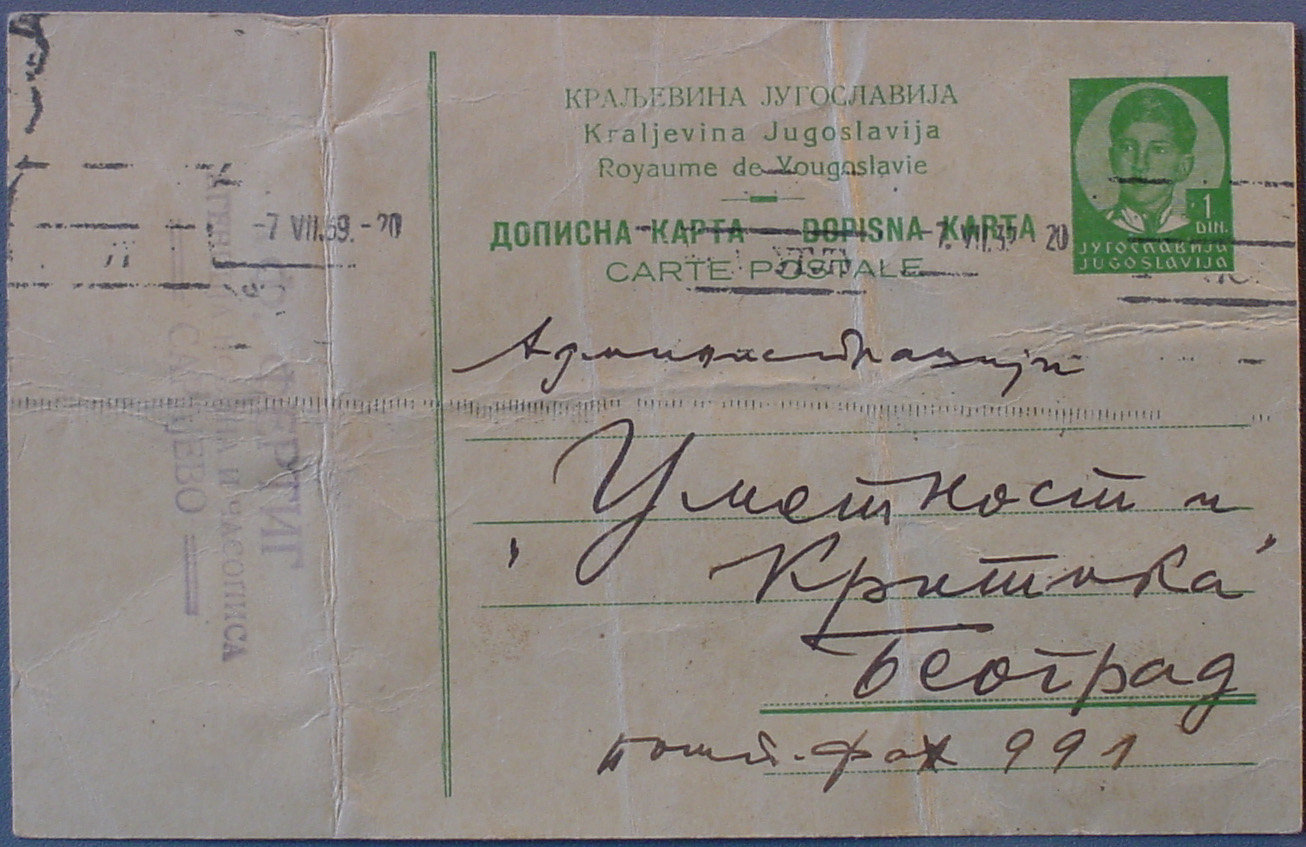 КРАЉЕВИНА ЈУГОСЛАВИЈА
Kraljevina Jugoslavija
Royaume de Yougoslavie
ДОПИСНА КАРТА — DOPISNA KARTA
CARTE POSTALE
1
DIN.
ЈУГОСЛАВИЈА
JUGOSLAVIJA
-7 VII.39.-20
-7 VII.39 20
Администрацији
Уметност и
" Критика "
Београд
пошт. фах 991
ЧАСОПИСА
САРАЈЕВО